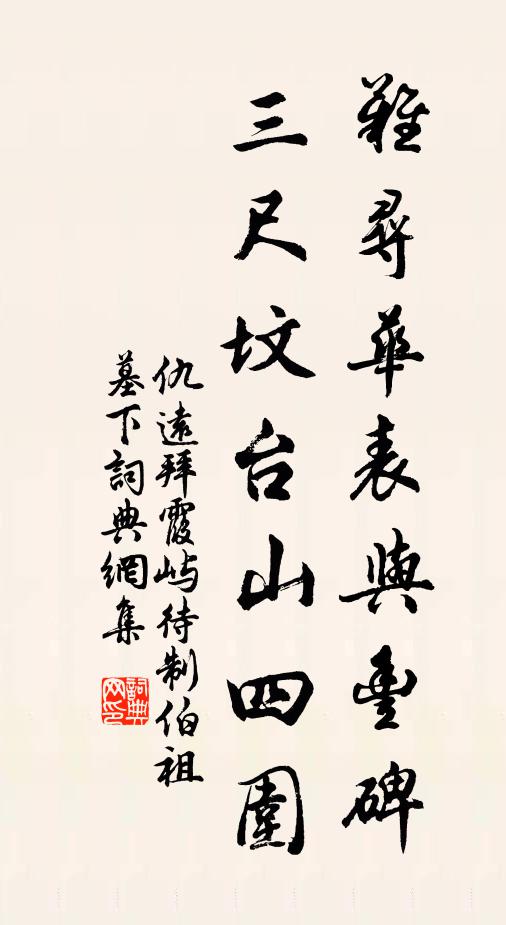 難尋華表與豐碑
三尺坟台山四圍
仇遠拜霞嶼待制伯祖
墓下詞典網集
詞典
网印